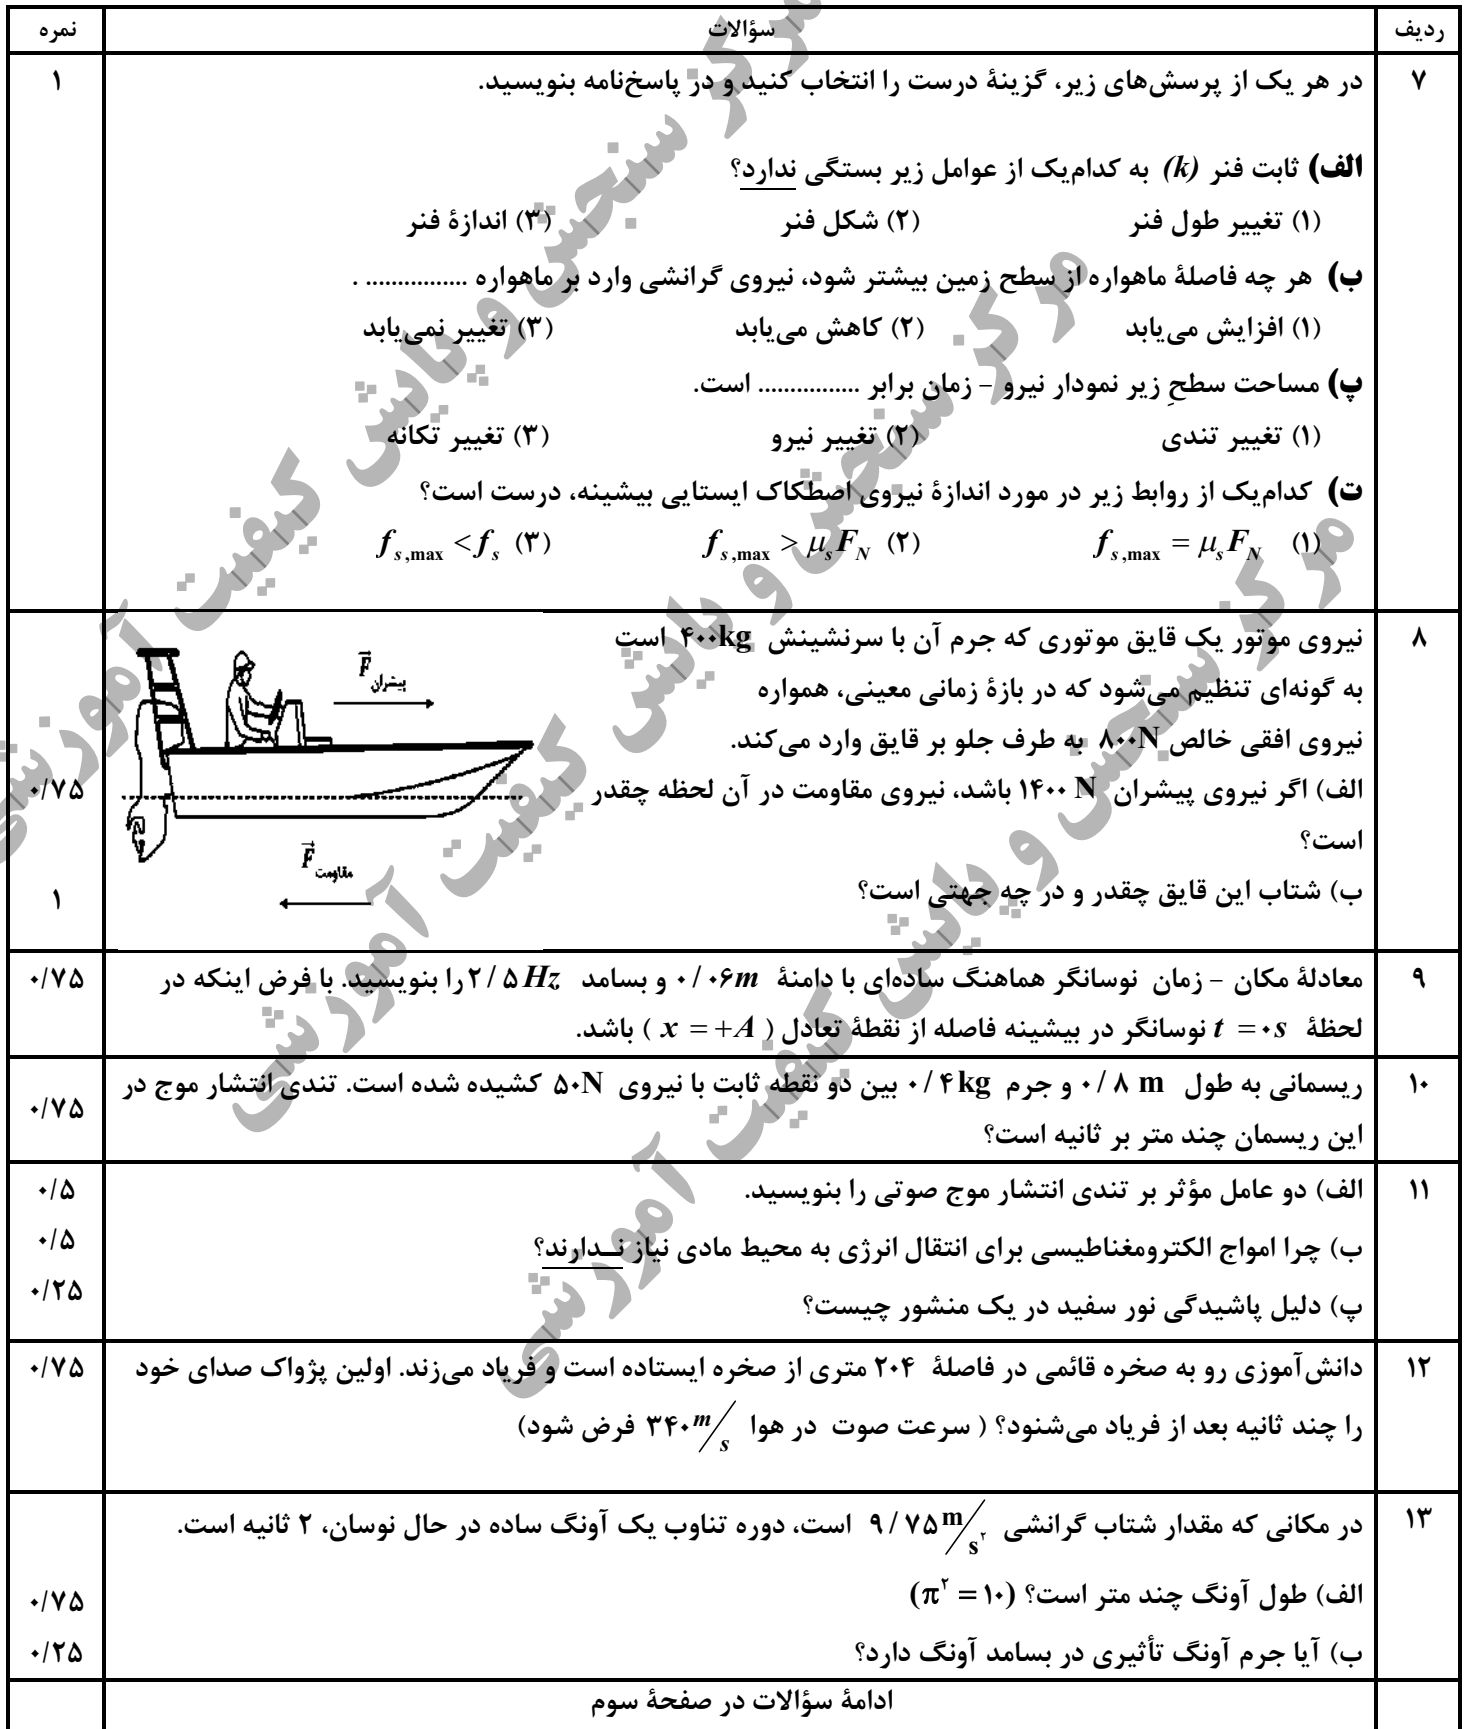 ردیف سؤالات نمره
۷ در هر یک از پرسش‌های زیر، گزینهٔ درست را انتخاب کنید و در پاسخ‌نامه بنویسید. ۱
الف) ثابت فنر (k) به کدام‌یک از عوامل زیر بستگی ندارد؟
(۱) تغییر طول فنر (۲) شکل فنر (۳) اندازهٔ فنر
ب) هر چه فاصلهٔ ماهواره از سطح زمین بیشتر شود، نیروی گرانشی وارد بر ماهواره ................ .
(۱) افزایش می‌یابد (۲) کاهش می‌یابد (۳) تغییر نمی‌یابد
پ) مساحت سطحِ زیر نمودار نیرو – زمان برابر ................ است.
(۱) تغییر تندی (۲) تغییر نیرو (۳) تغییر تکانه
ت) کدام‌یک از روابط زیر در مورد اندازهٔ نیروی اصطکاک ایستایی بیشینه، درست است؟
(۱) f_{s,max} = μ_s F_N (۲) f_{s,max} > μ_s F_N (۳) f_{s,max} < f_s
۸ نیروی موتور یک قایق موتوری که جرم آن با سرنشینش ۴۰۰kg است
به گونه‌ای تنظیم می‌شود که در بازهٔ زمانی معینی، همواره
نیروی افقی خالص ۸۰۰N به طرف جلو بر قایق وارد می‌کند.
الف) اگر نیروی پیشران ۱۴۰۰ N باشد، نیروی مقاومت در آن لحظه چقدر ۰/۷۵
است؟
ب) شتاب این قایق چقدر و در چه جهتی است؟ ۱
F پیشران
F مقاومت
۹ معادلهٔ مکان – زمان نوسانگر هماهنگ ساده‌ای با دامنهٔ ۰/۰۶m و بسامد ۲/۵Hz را بنویسید. با فرض اینکه در ۰/۷۵
لحظهٔ t = ۰s نوسانگر در بیشینه فاصله از نقطهٔ تعادل ( x = +A ) باشد.
۱۰ ریسمانی به طول ۰/۸ m و جرم ۰/۴kg بین دو نقطه ثابت با نیروی ۵۰N کشیده شده است. تندی انتشار موج در ۰/۷۵
این ریسمان چند متر بر ثانیه است؟
۱۱ الف) دو عامل مؤثر بر تندی انتشار موج صوتی را بنویسید. ۰/۵
ب) چرا امواج الکترومغناطیسی برای انتقال انرژی به محیط مادی نیاز نــدارند؟ ۰/۵
پ) دلیل پاشیدگی نور سفید در یک منشور چیست؟ ۰/۲۵
۱۲ دانش‌آموزی رو به صخره قائمی در فاصلهٔ ۲۰۴ متری از صخره ایستاده است و فریاد می‌زند. اولین پژواک صدای خود ۰/۷۵
را چند ثانیه بعد از فریاد می‌شنود؟ ( سرعت صوت در هوا ۳۴۰m/s فرض شود)
۱۳ در مکانی که مقدار شتاب گرانشی ۹/۷۵m/s² است، دوره تناوب یک آونگ ساده در حال نوسان، ۲ ثانیه است.
الف) طول آونگ چند متر است؟ (π² = ۱۰) ۰/۷۵
ب) آیا جرم آونگ تأثیری در بسامد آونگ دارد؟ ۰/۲۵
ادامهٔ سؤالات در صفحهٔ سوم
مرکز سنجش و پایش کیفیت آموزشی
مرکز سنجش و پایش کیفیت آموزشی
مرکز سنجش و پایش کیفیت آموزشی